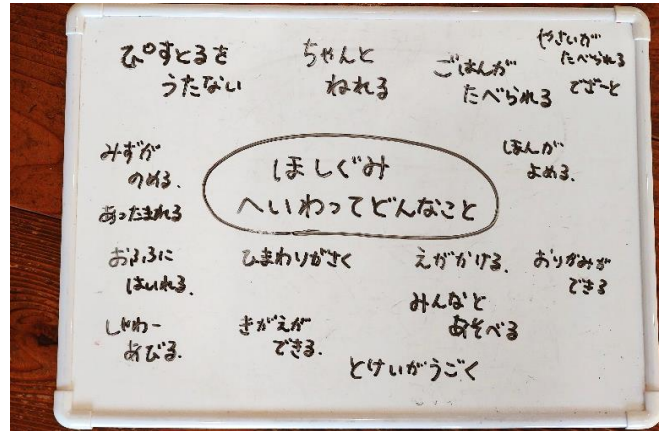 ぴすとるを
うたない
ちゃんと
ねれる
ごはんが
たべられる
やさいが
たべられる
でざーと
みずが
のめる.
あったまれる
ほしぐみ
へいわってどんなこと
ほんが
よめる.
おふろに
はいれる.
ひまわりがさく
えがかける.
おりがみが
できる
しゃわー
あびる.
きがえが
できる.
みんなと
あそべる
とけいがうごく